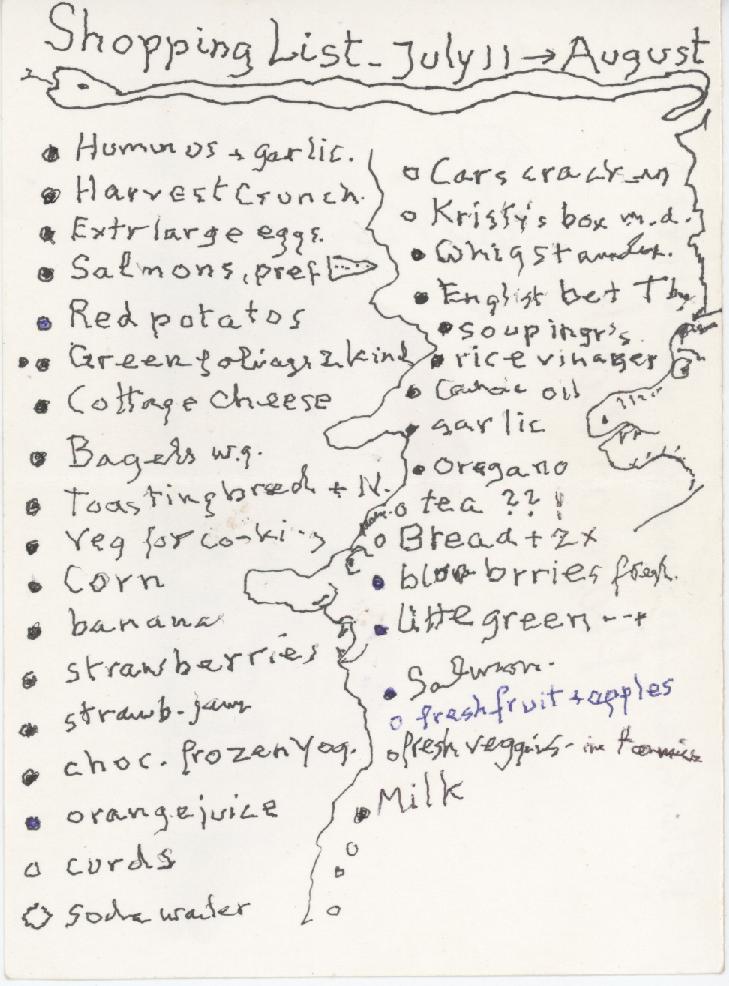 Shopping List - July 11 → August
Hummus + garlic.
Harvest Crunch.
Extr large eggs.
Salmons, pref
Red potatos
Green 2 kind
Cottage cheese
Bagels w.g.
Toasting bread + N.
veg for cooking
Corn
banana
strawberries
strawb. jam
choc. frozen Yog.
orange juice
curds
soda water
Cars
Kristy's box m.d.
English bet
soup ingr's
rice vinager
oil
garlic
oregano
tea ?? !
Bread + 2x
blue brries fresh.
little green
Salmon.
fresh fruit + apples
fresh veggies - in
Milk